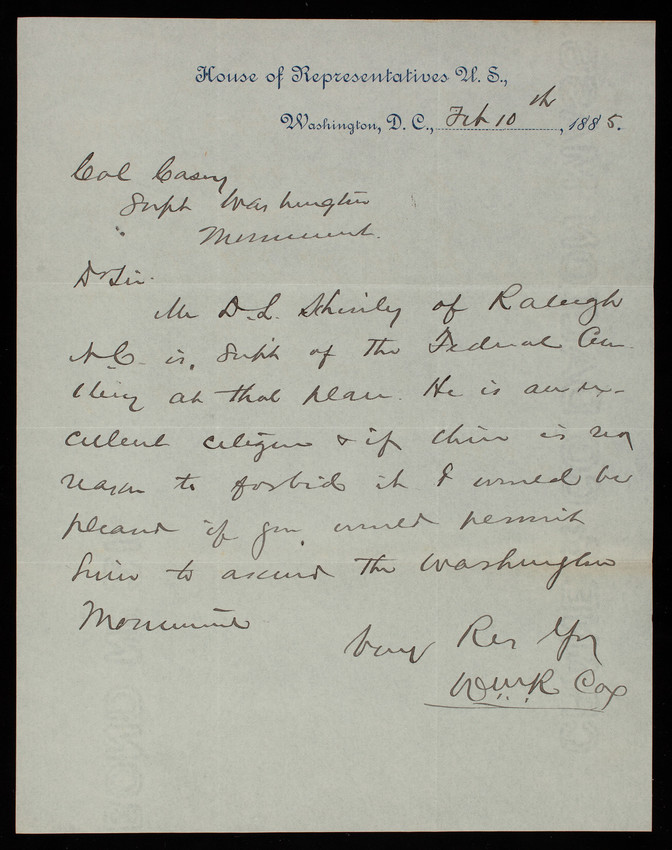 House of Representatives U. S.,
Washington, D. C., Feb 10th, 1885.
Col Casey
Supt Washington
Monument.
Dr Sir.
Mr D. L. of Raleigh
N.C. is Supt of the Federal Cem
etery at that place. He is an ex-
cellent citizen & if there is no
reason to forbid it I would be
pleased if you would permit
him to ascend the Washington
Monument
Very Res Yrs
Wm R Cox